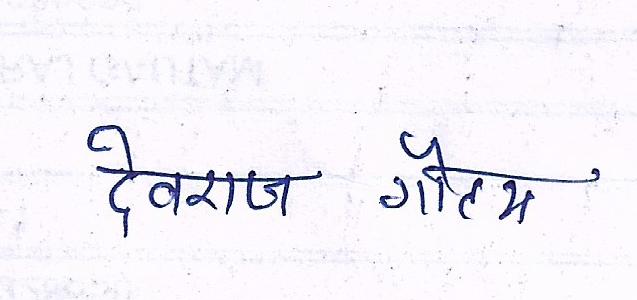 देवराज गौतम